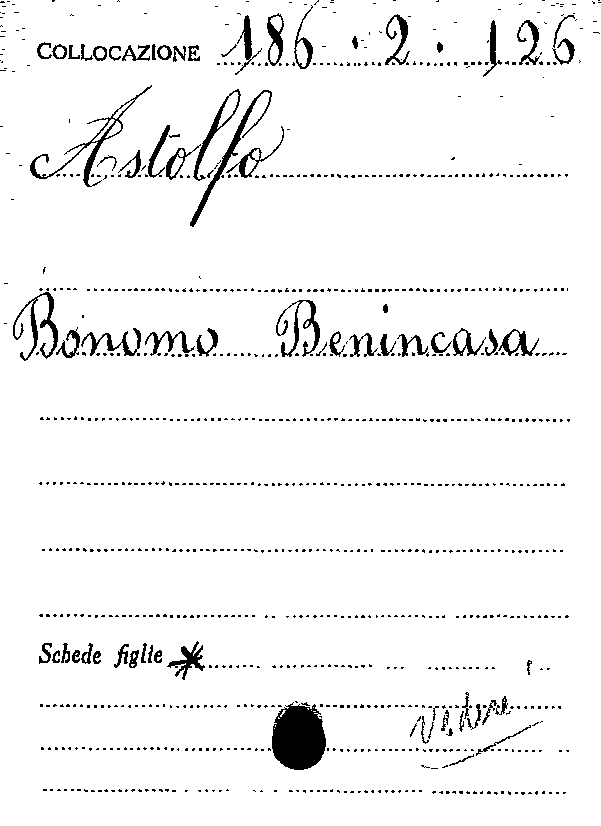 COLLOCAZIONE 186 . 2 . 126
Astolfo
Bonomo Benincasa
Schede figlie *